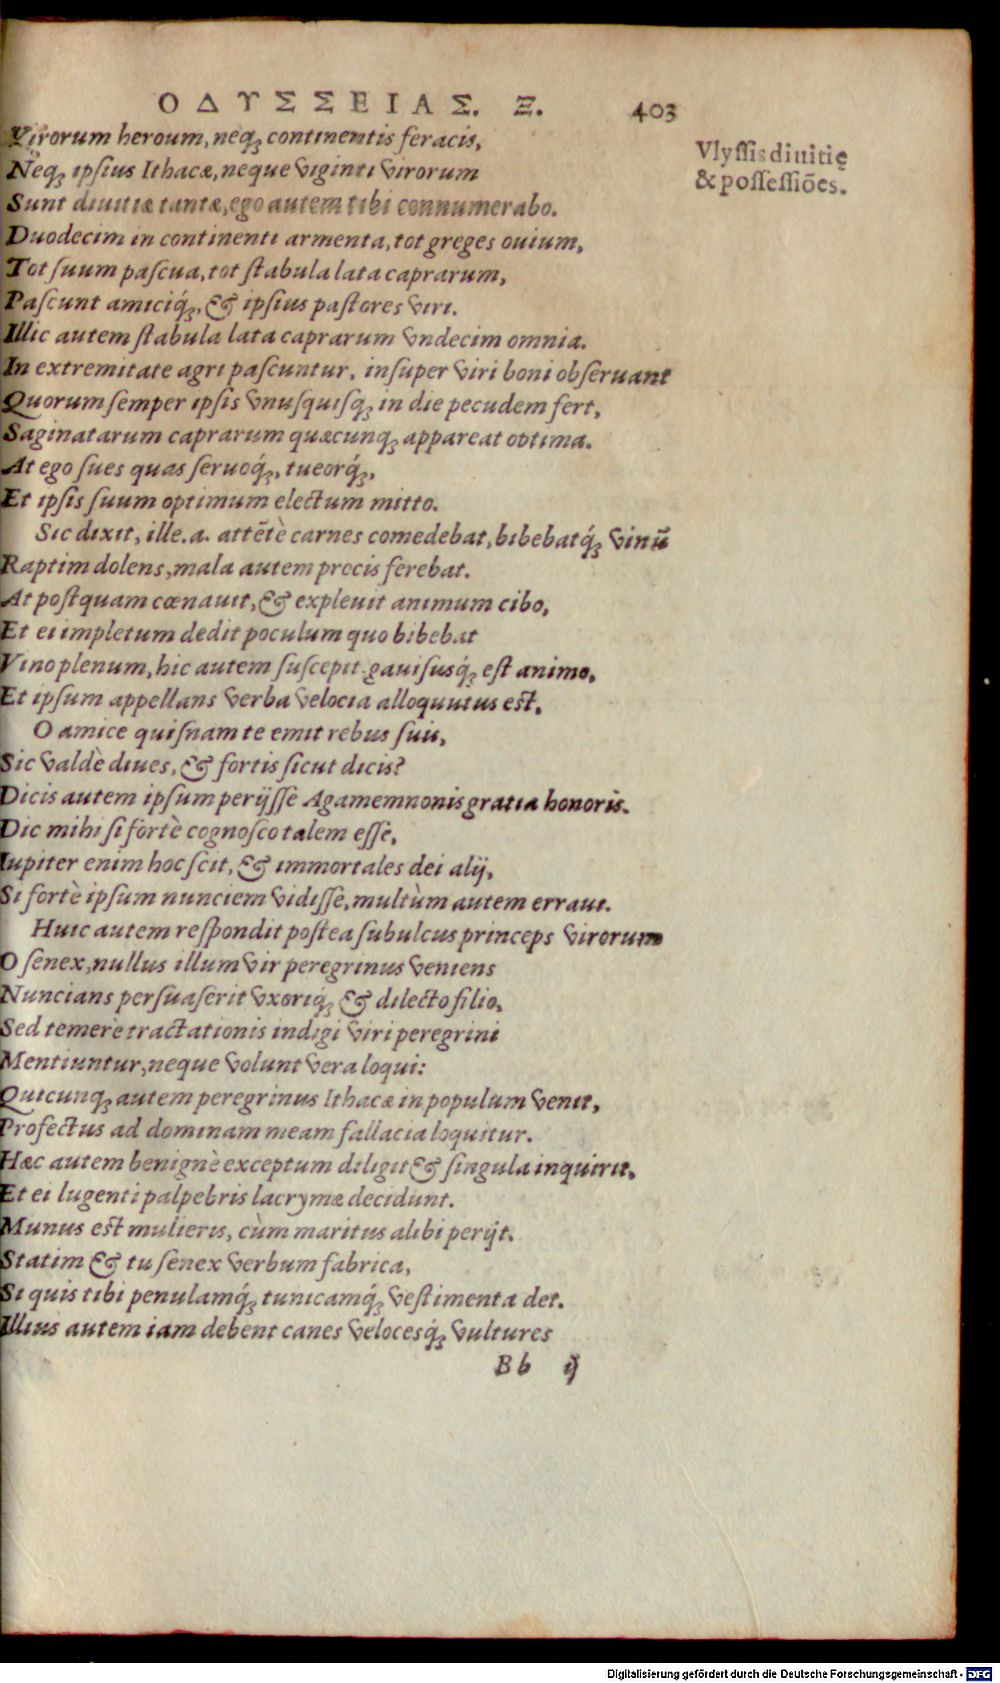 ΟΔΥΣΣΕΙΑΣ. Ξ. 403
Virorum heroum, neq; continentis feracis,
Neq; ipsius Ithacæ, neque viginti virorum
Sunt diuitiæ tantæ, ego autem tibi connumerabo.
Duodecim in continenti armenta, tot greges ouium,
Tot suum pascua, tot stabula lata caprarum,
Pascunt amiciq́;, & ipsius pastores viri.
Illic autem stabula lata caprarum vndecim omnia.
In extremitate agri pascuntur, insuper viri boni obseruant
Quorum semper ipsis vnusquisq; in die pecudem fert,
Saginatarum caprarum quæcunq; appareat optima.
At ego sues quas seruoq́;, tueorq́;,
Et ipsis suum optimum electum mitto.
Sic dixit, ille.a. attẽtè carnes comedebat, bibebatq́; vinũ
Raptim dolens, mala autem procis ferebat.
At postquam cœnauit, & expleuit animum cibo,
Et ei impletum dedit poculum quo bibebat
Vino plenum, hic autem suscepit gauisusq́; est animo,
Et ipsum appellans verba velocia alloquutus est.
O amice quisnam te emit rebus suis,
Sic valdè diues, & fortis sicut dicis?
Dicis autem ipsum perijsse Agamemnonis gratia honoris.
Dic mihi si fortè cognosco talem esse,
Iupiter enim hoc scit, & immortales dei alij,
Si fortè ipsum nunciem vidisse, multùm autem erraui.
Huic autem respondit postea subulcus princeps virorum
O senex, nullus illum vir peregrinus veniens
Nuncians persuaserit vxoriq́; & dilecto filio,
Sed temerè tractationis indigi viri peregrini
Mentiuntur, neque volunt vera loqui:
Quicunq; autem peregrinus Ithacæ in populum venit,
Profectus ad dominam meam fallacia loquitur.
Hæc autem benignè exceptum diligit & singula inquirit,
Et ei lugenti palpebris lacrymæ decidunt.
Munus est mulieris, cùm maritus alibi perijt.
Statim & tu senex verbum fabrica,
Si quis tibi penulamq́; tunicamq́; vestimenta det.
Illius autem iam debent canes velocesq́; vultures
Bb ij
Vlyssis diuitię
& possessiões.
Digitalisierung gefördert durch die Deutsche Forschungsgemeinschaft - DFG